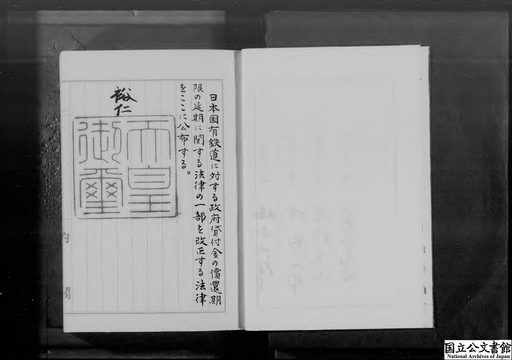 日本国有鉄道に対する政府貸付金の償還期
限の延期に関する法律の一部を改正する法律
をここに公布する。
裕仁
天皇
御璽
国立公文書館
National Archives of Japan